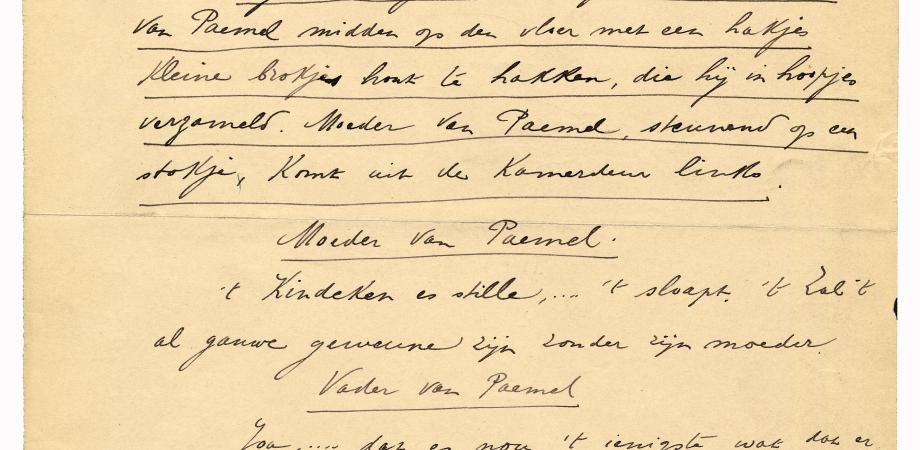 Van Paemel midden op den vloer met een hakjes
kleine brokjes hout te hakken, die hij in hoopjes
verzameld. Moeder Van Paemel, steunend op een
stokje, komt uit de Kamerdeur links.
Moeder Van Paemel.
't Kindeken es stille,.... 't sloapt. 't Zal 't
al gauwe geweune zijn zonder zijn moeder.
Vader van Paemel
Joa..... dat es nou 't ienigste wat dat er